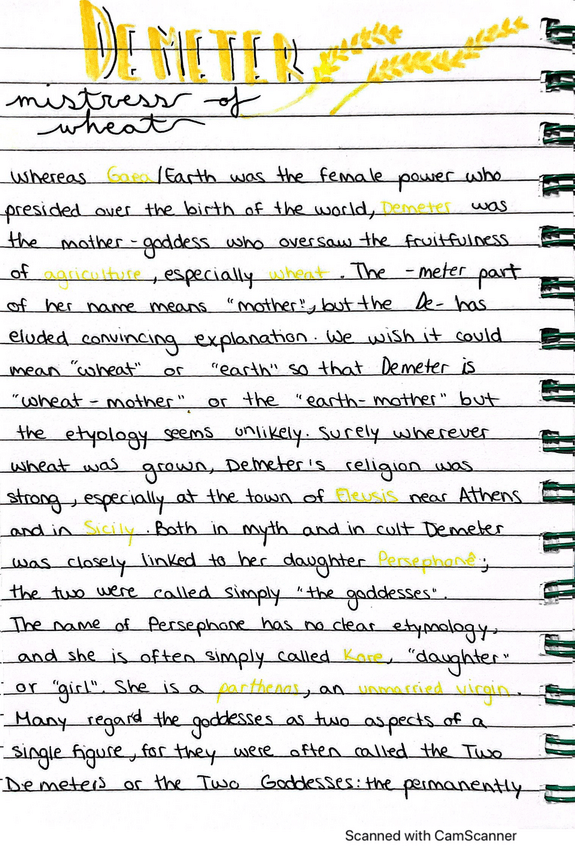 DEMETER
mistress of
wheat
whereas Gaea/Earth was the female power who
presided over the birth of the world, Demeter was
the mother-goddess who oversaw the fruitfulness
of agriculture, especially wheat. The -meter part
of her name means "mother", but the De- has
eluded convincing explanation. We wish it could
mean "wheat" or "earth" so that Demeter is
"wheat-mother" or the "earth-mother" but
the etyology seems unlikely. Surely wherever
wheat was grown, Demeter's religion was
strong, especially at the town of Eleusis near Athens
and in Sicily. Both in myth and in cult Demeter
was closely linked to her daughter Persephone;
the two were called simply "the goddesses".
The name of Persephone has no clear etymology,
and she is often simply called Kore, "daughter"
or "girl". She is a parthenos, an unmarried virgin.
Many regard the goddesses as two aspects of a
single figure, for they were often called the Two
Demeters or the Two Goddesses: the permanently
Scanned with CamScanner